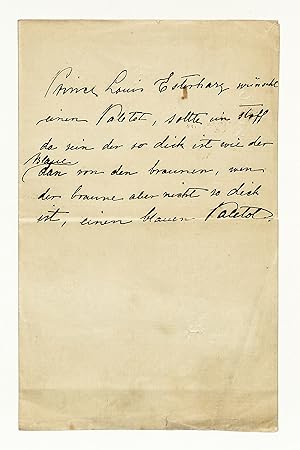 Prince Louis Esterhazy wünscht
einen Paletot, sollte ein Stoff
da sein der so dick ist wie der
Blaue
dan von den braunen, wen
der braune aber nicht so dick
ist, einen blauen Paletot.